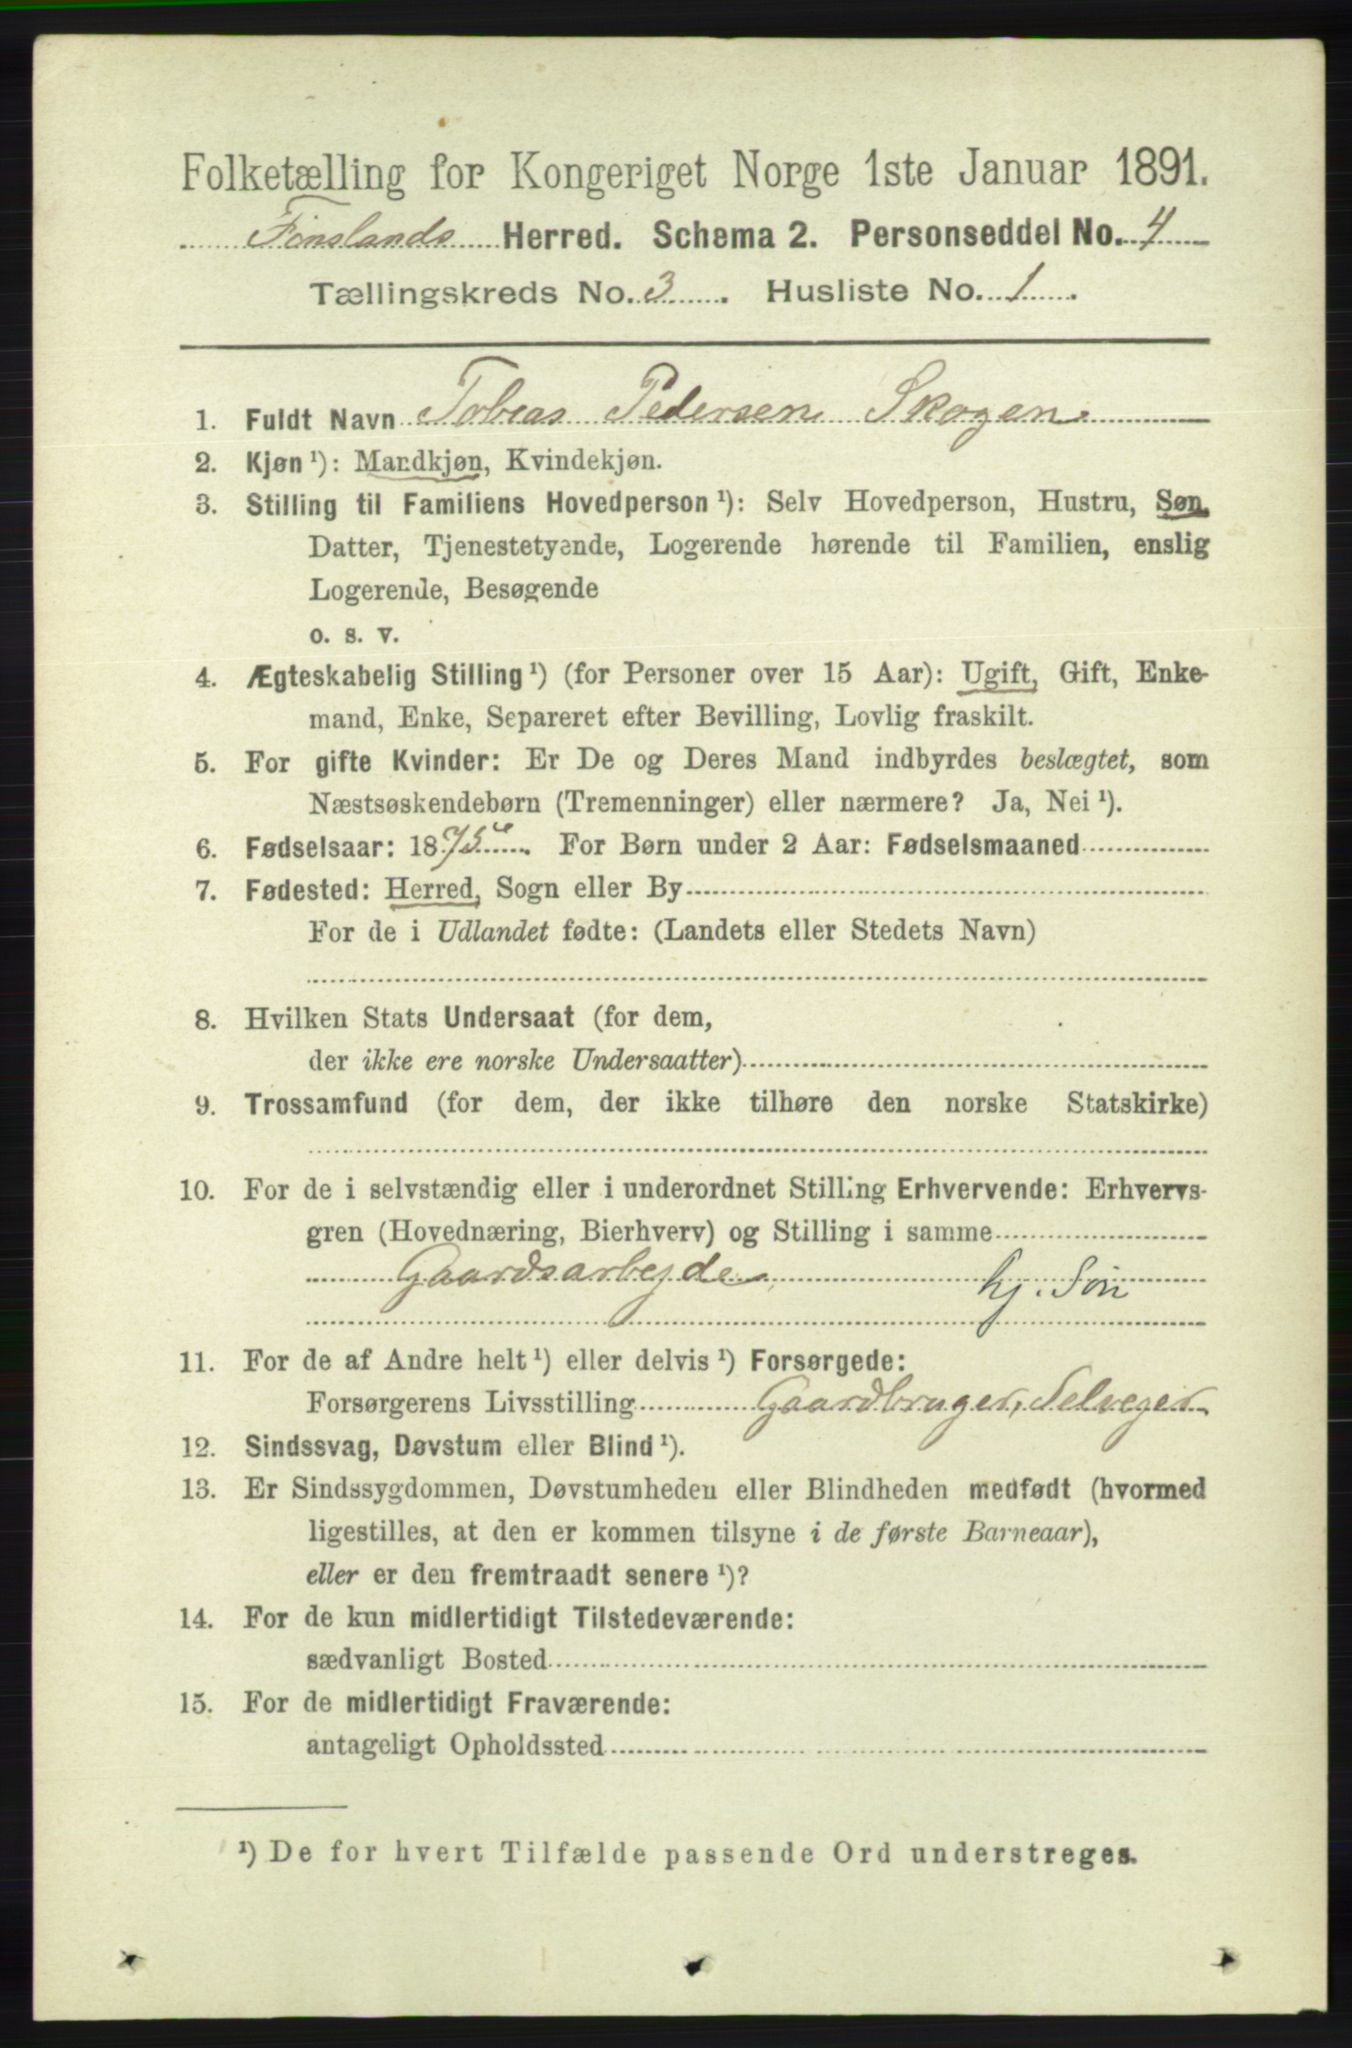 Folketælling for Kongeriget Norge 1ste Januar 1891.
Finslands Herred. Schema 2. Personseddel No. 4
Tællingskreds No. 3. Husliste No. 1.
1. Fuldt Navn Tobias Pedersen Skogen
2. Kjøn ¹): Mandkjøn, Kvindekjøn.
3. Stilling til Familiens Hovedperson ¹): Selv Hovedperson, Hustru, Søn,
Datter, Tjenestetyende, Logerende hørende til Familien, enslig
Logerende, Besøgende
o. s. v.
4. Ægteskabelig Stilling ¹) (for Personer over 15 Aar): Ugift, Gift, Enke-
mand, Enke, Separeret efter Bevilling, Lovlig fraskilt.
5. For gifte Kvinder: Er De og Deres Mand indbyrdes beslægtet, som
Næstsøskendebørn (Tremenninger) eller nærmere? Ja, Nei ¹).
6. Fødselsaar: 1875. For Børn under 2 Aar: Fødselsmaaned
7. Fødested: Herred, Sogn eller By
For de i Udlandet fødte: (Landets eller Stedets Navn)
8. Hvilken Stats Undersaat (for dem,
der ikke ere norske Undersaatter)
9. Trossamfund (for dem, der ikke tilhøre den norske Statskirke)
10. For de i selvstændig eller i underordnet Stilling Erhvervende: Erhvervs-
gren (Hovednæring, Bierhverv) og Stilling i samme
Gaardsarbejde hj. Søn
11. For de af Andre helt ¹) eller delvis ¹) Forsørgede:
Forsørgerens Livsstilling Gaardbruger, Selvejer
12. Sindssvag, Døvstum eller Blind ¹).
13. Er Sindssygdommen, Døvstumheden eller Blindheden medfødt (hvormed
ligestilles, at den er kommen tilsyne i de første Barneaar),
eller er den fremtraadt senere ¹)?
14. For de kun midlertidigt Tilstedeværende:
sædvanligt Bosted
15. For de midlertidigt Fraværende:
antageligt Opholdssted
¹) De for hvert Tilfælde passende Ord understreges.